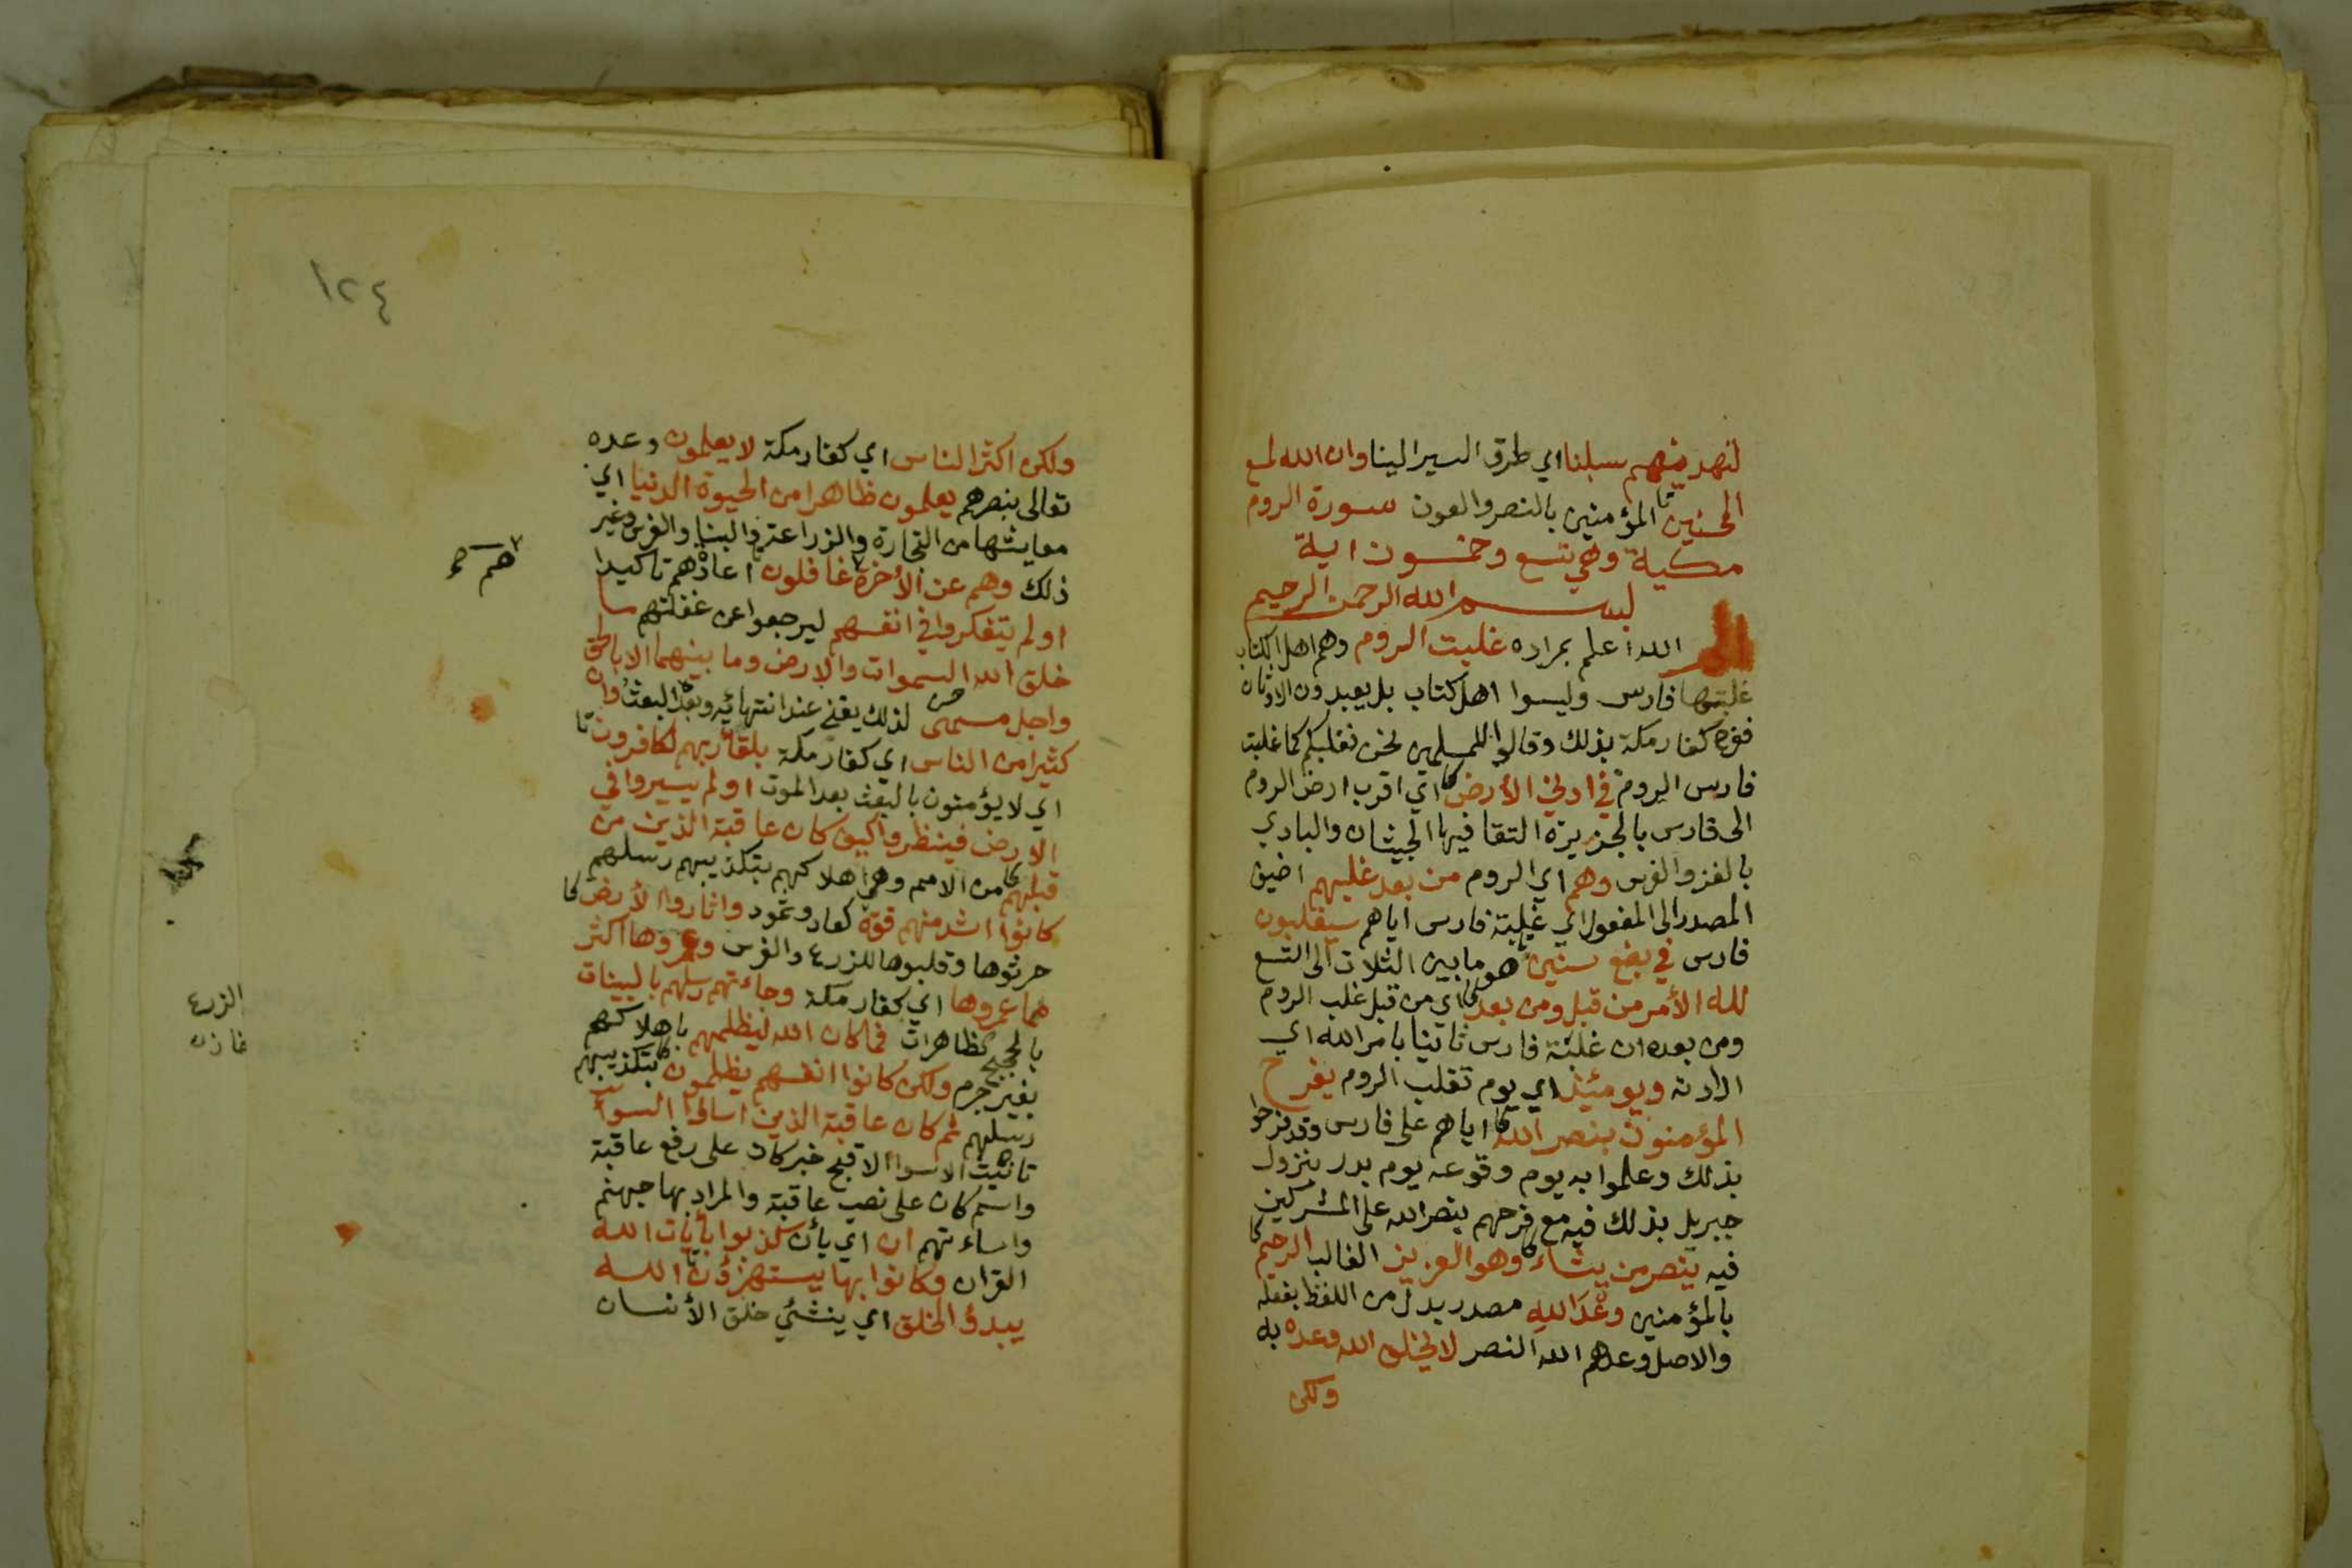 لنهدينهم سبلنا اي طرق السير الينا وان الله لمع
المحسنين المؤمنين بالنصر والعون سورة الروم
مكية وهي تسع وخمسون اية
بسم الله الرحمن الرحيم
الم الله اعلم بمراده غلبت الروم وهم اهل الكتاب
غلبتها فارس وليسوا اهل كتاب بل يعبدون الاوثان
ففرح كفار مكة بذلك وقالوا للمسلمين نحن نغلبكم كما غلبت
فارس الروم في ادني الأرض اي اقرب ارض الروم
الى فارس بالجزيرة التقا فيها الجيشان والبادي
بالغزو الفرس وهم اي الروم من بعد غلبهم اضيق
المصدر الى المفعول اي غلبة فارس اياهم سيغلبون
فارس في بضع سنين هو ما بين الثلاث الى التسع
لله الأمر من قبل ومن بعد اي من قبل غلب الروم
ومن بعده ان غلبة فارس ثانيا بامر الله اي
ارادته ويومئذ اي يوم تغلب الروم يفرح
المؤمنون بنصر الله اياهم على فارس وقد فرحوا
بذلك وعلموا به يوم وقوعه يوم بدر بنزول
جبريل بذلك فيه مع فرحهم بنصر الله على المشركين
فيه ينصر من يشاء وهو العزيز الغالب الرحيم
بالمؤمنين وعد الله مصدر بدل من اللفظ بفعله
والاصل وعدهم الله النصر لا يخلف الله وعده به
ولكن
١٢٤
ولكن اكثر الناس اي كفار مكة لا يعلمون وعده
تعالى بنصرهم يعلمون ظاهرا من الحيوة الدنيا اي
معايشها من التجارة والزراعة والبنا والغرس وغير
ذلك وهم عن الأخرة غافلون اعادهم تاكيدا
هم صح
اولم يتفكروا في انفسهم ليرجعوا عن غفلتهم ما
خلق الله السموات والارض وما بينهما الا بالحق
واجل مسمى لذلك يفنى عند انتهائه وبعد البعث وان
كثيرا من الناس اي كفار مكة بلقائ ربهم لكافرون
اي لا يؤمنون بالبعث بعد الموت اولم يسيروا في
الارض فينظروا كيف كان عاقبة الذين من
قبلهم من الامم وهي اهلاكهم بتكذيبهم رسلهم
كانوا اشد منهم قوة كعاد وثمود واثاروا الأرض
حرثوها وقلبوها للزرع والغرس وعمروها اكثر
مما عمروها اي كفار مكة وجاءتهم رسلهم بالبينات
الزرع
بالحجج الظاهرات فما كان الله ليظلمهم باهلاكهم
بغير جرم ولكن كانوا انفسهم يظلمون بتكذيبهم
رسلهم ثم كان عاقبة الذين اساؤا السوا
تانيث الاسوا الاقبح خبر كان على رفع عاقبة
واسم كان على نصب عاقبة والمراد بها جهنم
واساءتهم ان اي بأن كذبوا بأيات الله
القران وكانوا بها يستهزؤن الله
يبدؤ الخلق اي ينشئ خلق الأنسان